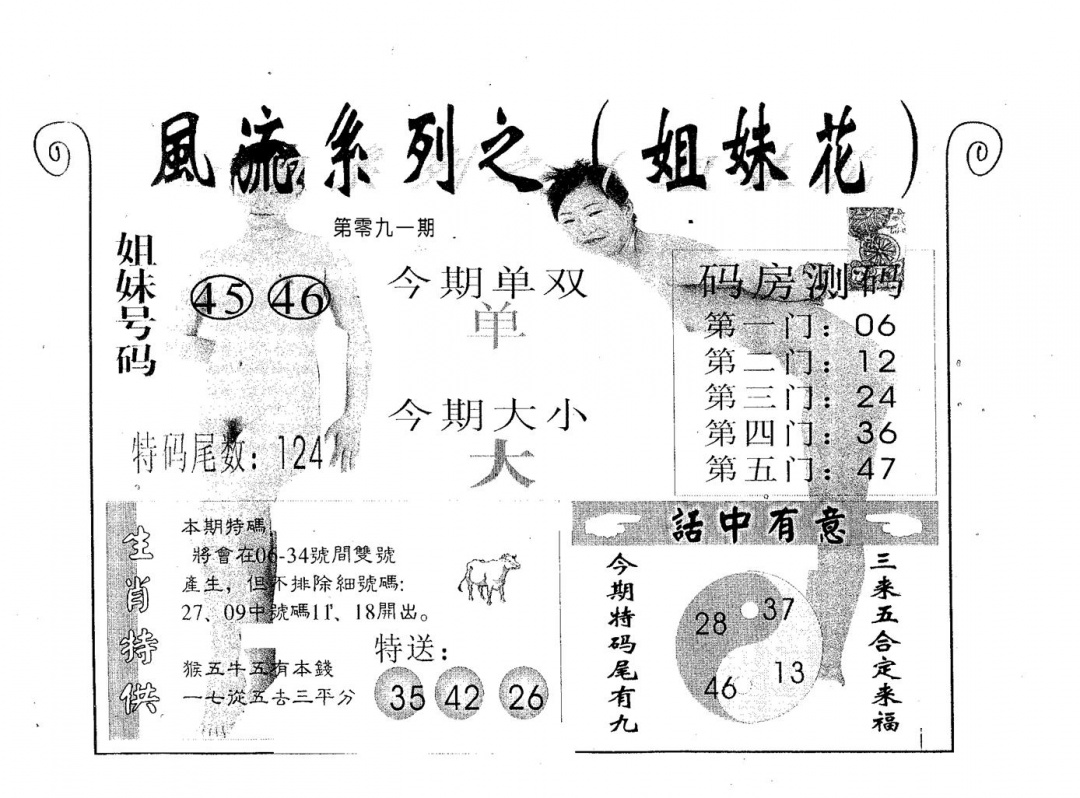 風流系列之（姐妹花）
第零九一期
姐妹号码
45 46
特码尾数：124
今期单双
单
今期大小
大
码房测码
第一门：06
第二门：12
第三门：24
第四门：36
第五门：47
生肖特供
本期特碼,
將會在06-34號間雙號
產生，但不排除細號碼:
27、09中號碼11、18開出。
猴五牛五有本錢
一七從五去三平分
特送：
35 42 26
話中有意
今期特码尾有九
28 37
46 13
三来五合定来福